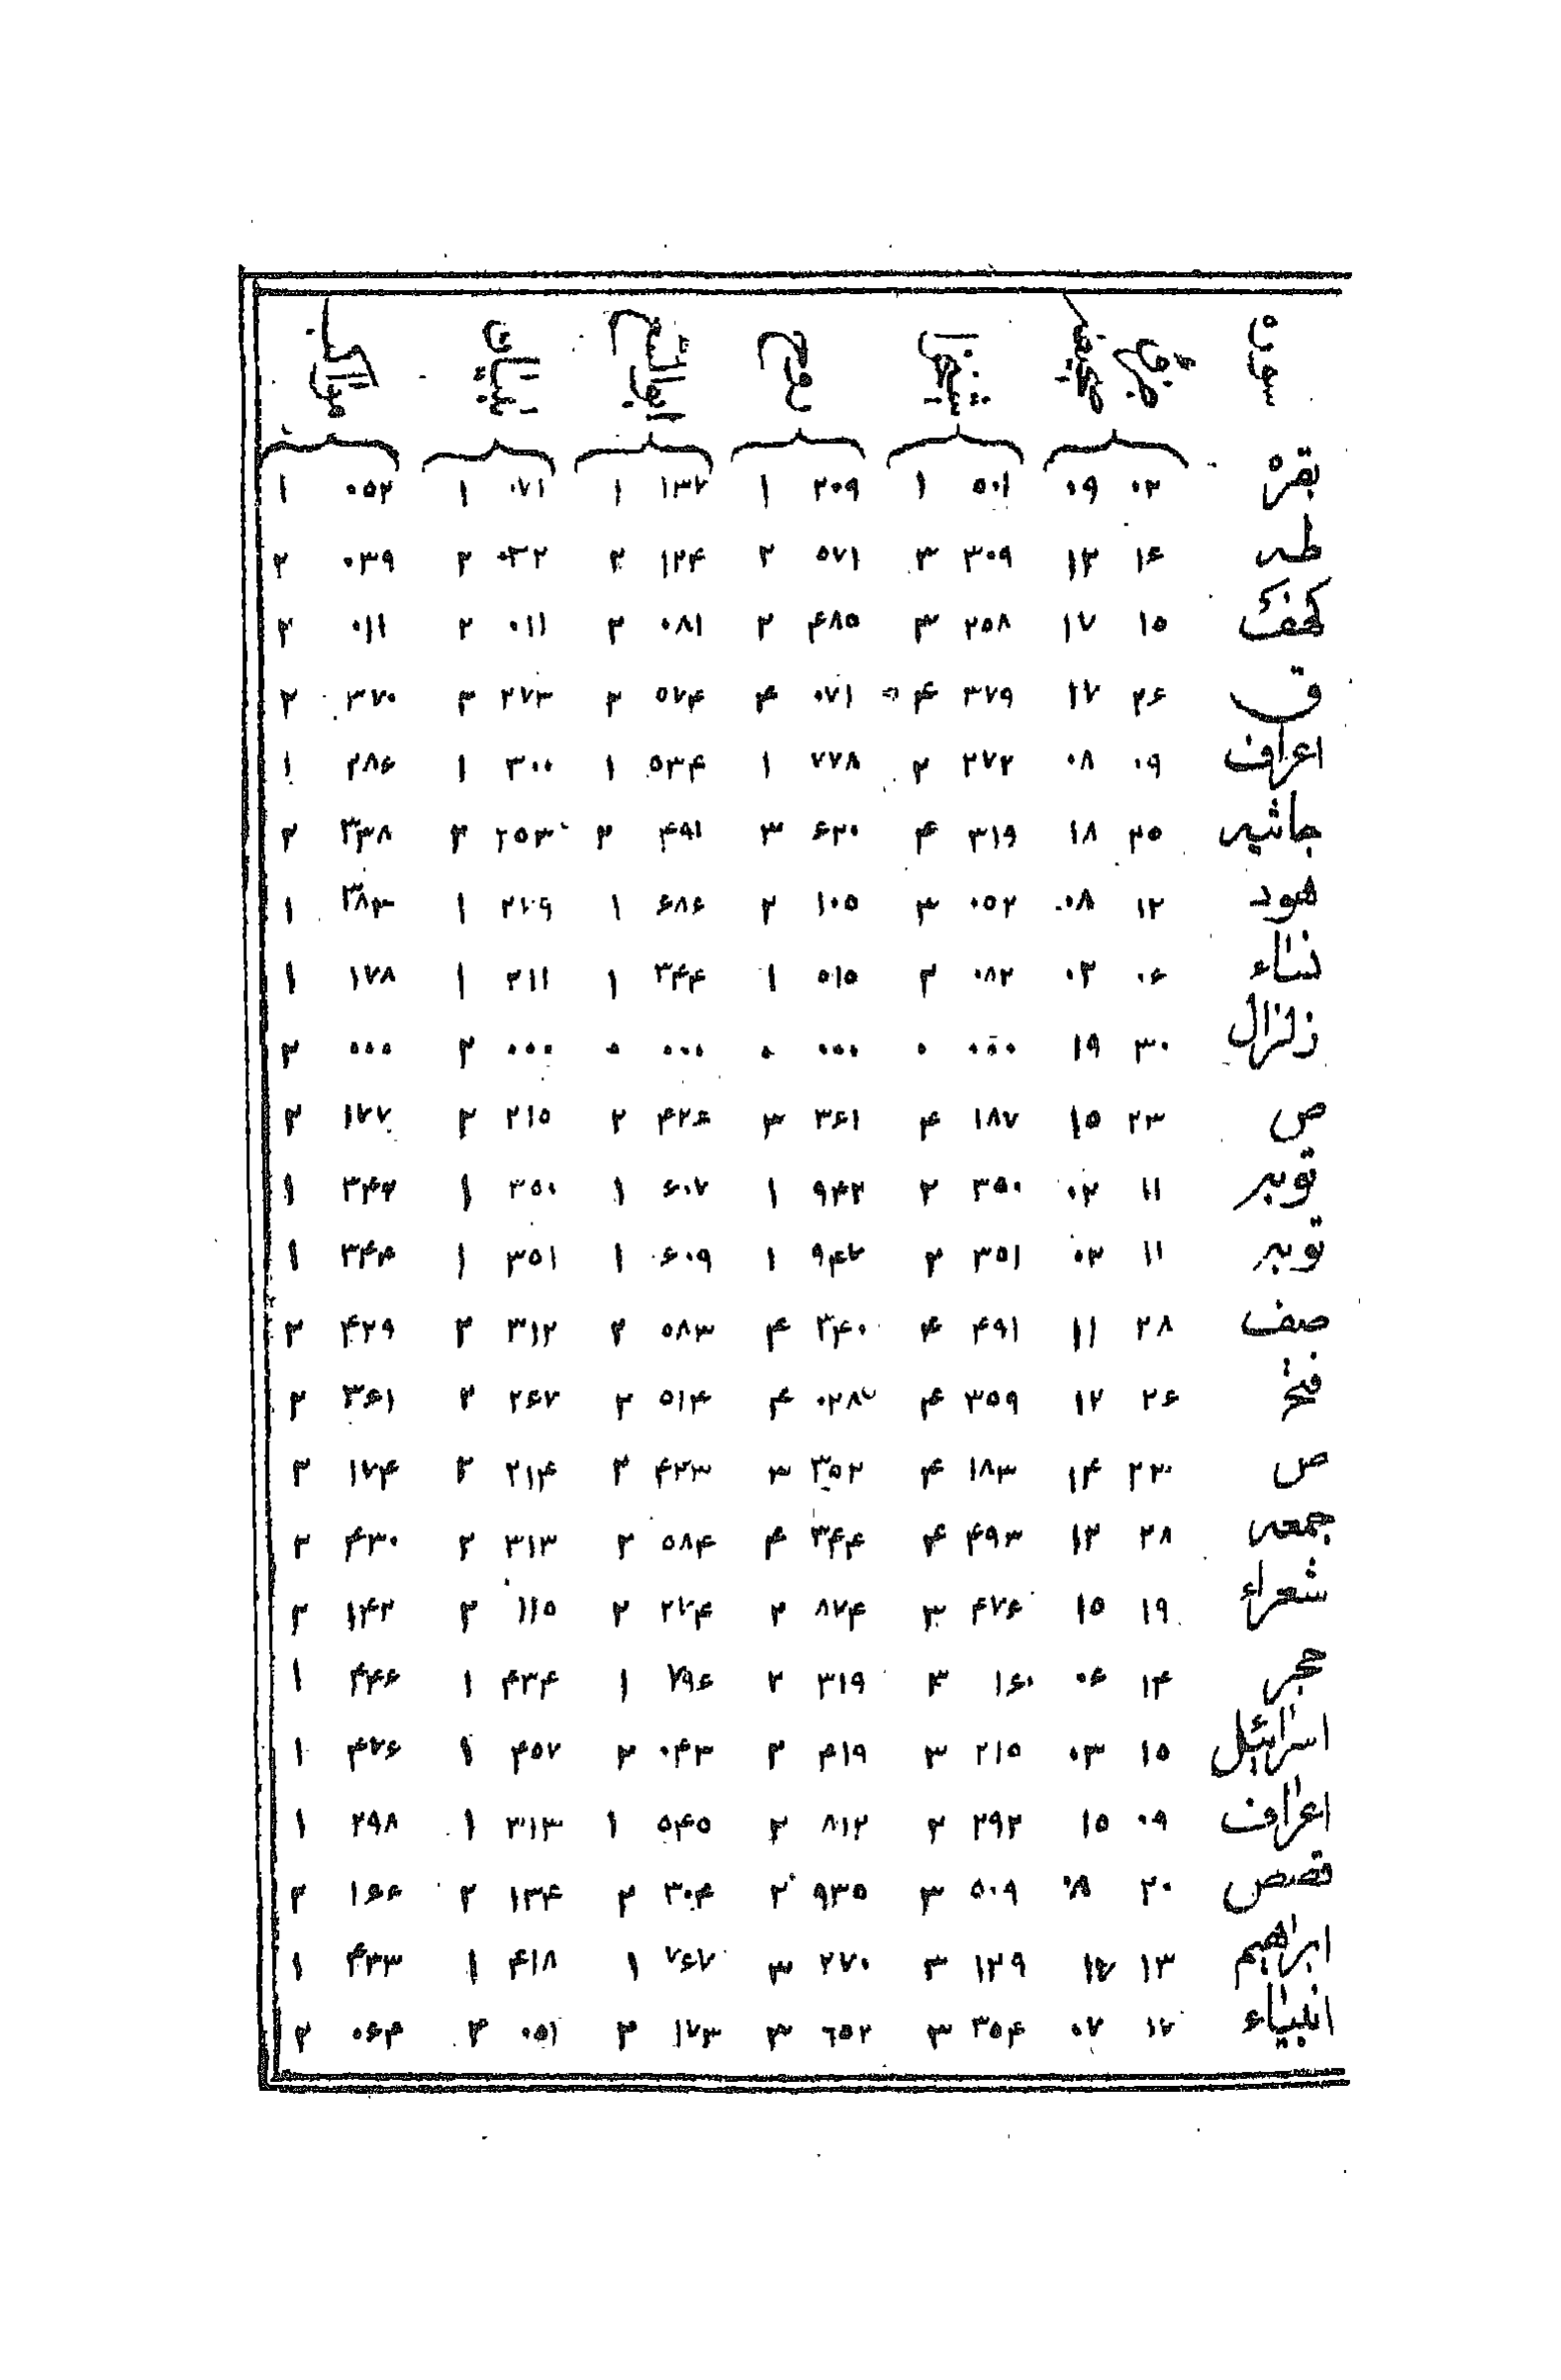 بقره ۰۲ ۰۹ ۵۰۱ ۱ ۲۰۹ ۱ ۱۳۷ ۱ ۰۷۱ ۱ ۰۵۲ ۱
طه ۱۶ ۱۲ ۳۰۹ ۳ ۵۷۱ ۲ ۱۲۴ ۲ ۰۳۲ ۲ ۰۳۹ ۲
کهف ۱۵ ۱۷ ۲۵۸ ۳ ۴۸۵ ۲ ۰۸۱ ۲ ۰۱۱ ۲ ۰۱۱ ۲
ق ۲۶ ۱۷ ۳۷۹ ۴ ۰۷۱ ۴ ۵۷۴ ۲ ۲۷۳ ۲ ۳۷۰ ۲
اعراف ۰۹ ۰۸ ۲۷۲ ۲ ۷۷۸ ۱ ۵۳۴ ۱ ۳۰۰ ۱ ۲۸۶ ۱
جاثیه ۲۵ ۱۸ ۳۱۹ ۴ ۶۲۰ ۳ ۴۹۱ ۲ ۲۵۳ ۲ ۳۳۸ ۲
هود ۱۲ ۰۸ ۰۵۲ ۳ ۱۰۵ ۲ ۶۸۶ ۱ ۱ ۳۸۳ ۱
نساء ۰۶ ۰۲ ۰۸۲ ۲ ۵۱۵ ۱ ۳۴۴ ۱ ۲۱۱ ۱ ۱۷۸ ۱
زلزال ۳۰ ۱۹ ۰۰۰ ۰ ۰۰۰ ۰ ۰۰۰ ۰ ۰۰۰ ۲ ۰۰۰ ۲
ص ۲۳ ۱۵ ۱۸۷ ۴ ۳۶۱ ۳ ۴۲۶ ۲ ۲۱۵ ۲ ۱۷۷ ۲
توبه ۱۱ ۰۲ ۳۵۰ ۲ ۹۴۲ ۱ ۶۰۷ ۱ ۳۵۰ ۱ ۳۴۳ ۱
توبه ۱۱ ۰۳ ۳۵۱ ۲ ۹۴۷ ۱ ۶۰۹ ۱ ۳۵۱ ۱ ۳۴۴ ۱
صف ۲۸ ۱۱ ۴۹۱ ۴ ۳۴۰ ۴ ۵۸۳ ۲ ۳۱۲ ۲ ۴۲۹ ۲
فتح ۲۶ ۱۲ ۳۵۹ ۴ ۰۲۸ ۴ ۵۱۴ ۲ ۲۶۷ ۲ ۳۶۱ ۲
ص ۲۳ ۱۴ ۱۸۳ ۴ ۳۵۲ ۳ ۴۲۳ ۲ ۲۱۴ ۲ ۱۷۴ ۲
جمعه ۲۸ ۱۲ ۴۹۳ ۴ ۳۴۴ ۴ ۵۸۴ ۲ ۳۱۳ ۲ ۴۳۰ ۲
شعراء ۱۹ ۱۵ ۴۷۶ ۳ ۸۷۴ ۲ ۲۷۴ ۲ ۱۱۵ ۲ ۱۴۲ ۲
حجر ۱۴ ۰۶ ۱۶۰ ۳ ۳۱۹ ۲ ۷۹۶ ۱ ۴۳۴ ۱ ۴۴۶ ۱
اسرائیل ۱۵ ۰۳ ۲۱۵ ۳ ۴۱۹ ۲ ۰۴۳ ۲ ۴۵۷ ۱ ۴۷۶ ۱
اعراف ۰۹ ۱۵ ۲۹۲ ۲ ۸۱۲ ۲ ۵۴۵ ۱ ۳۱۳ ۱ ۲۹۸ ۱
قصص ۲۰ ۰۸ ۵۰۹ ۳ ۹۳۵ ۲ ۳۰۴ ۲ ۱۳۴ ۲ ۱۶۶ ۲
ابراهیم ۱۳ ۱۷ ۱۲۹ ۳ ۲۷۰ ۳ ۷۶۷ ۱ ۴۱۸ ۱ ۴۳۳ ۱
انبیاء ۱۷ ۰۷ ۳۵۴ ۳ ۶۵۲ ۳ ۱۷۳ ۲ ۰۵۱ ۲ ۰۶۴ ۲